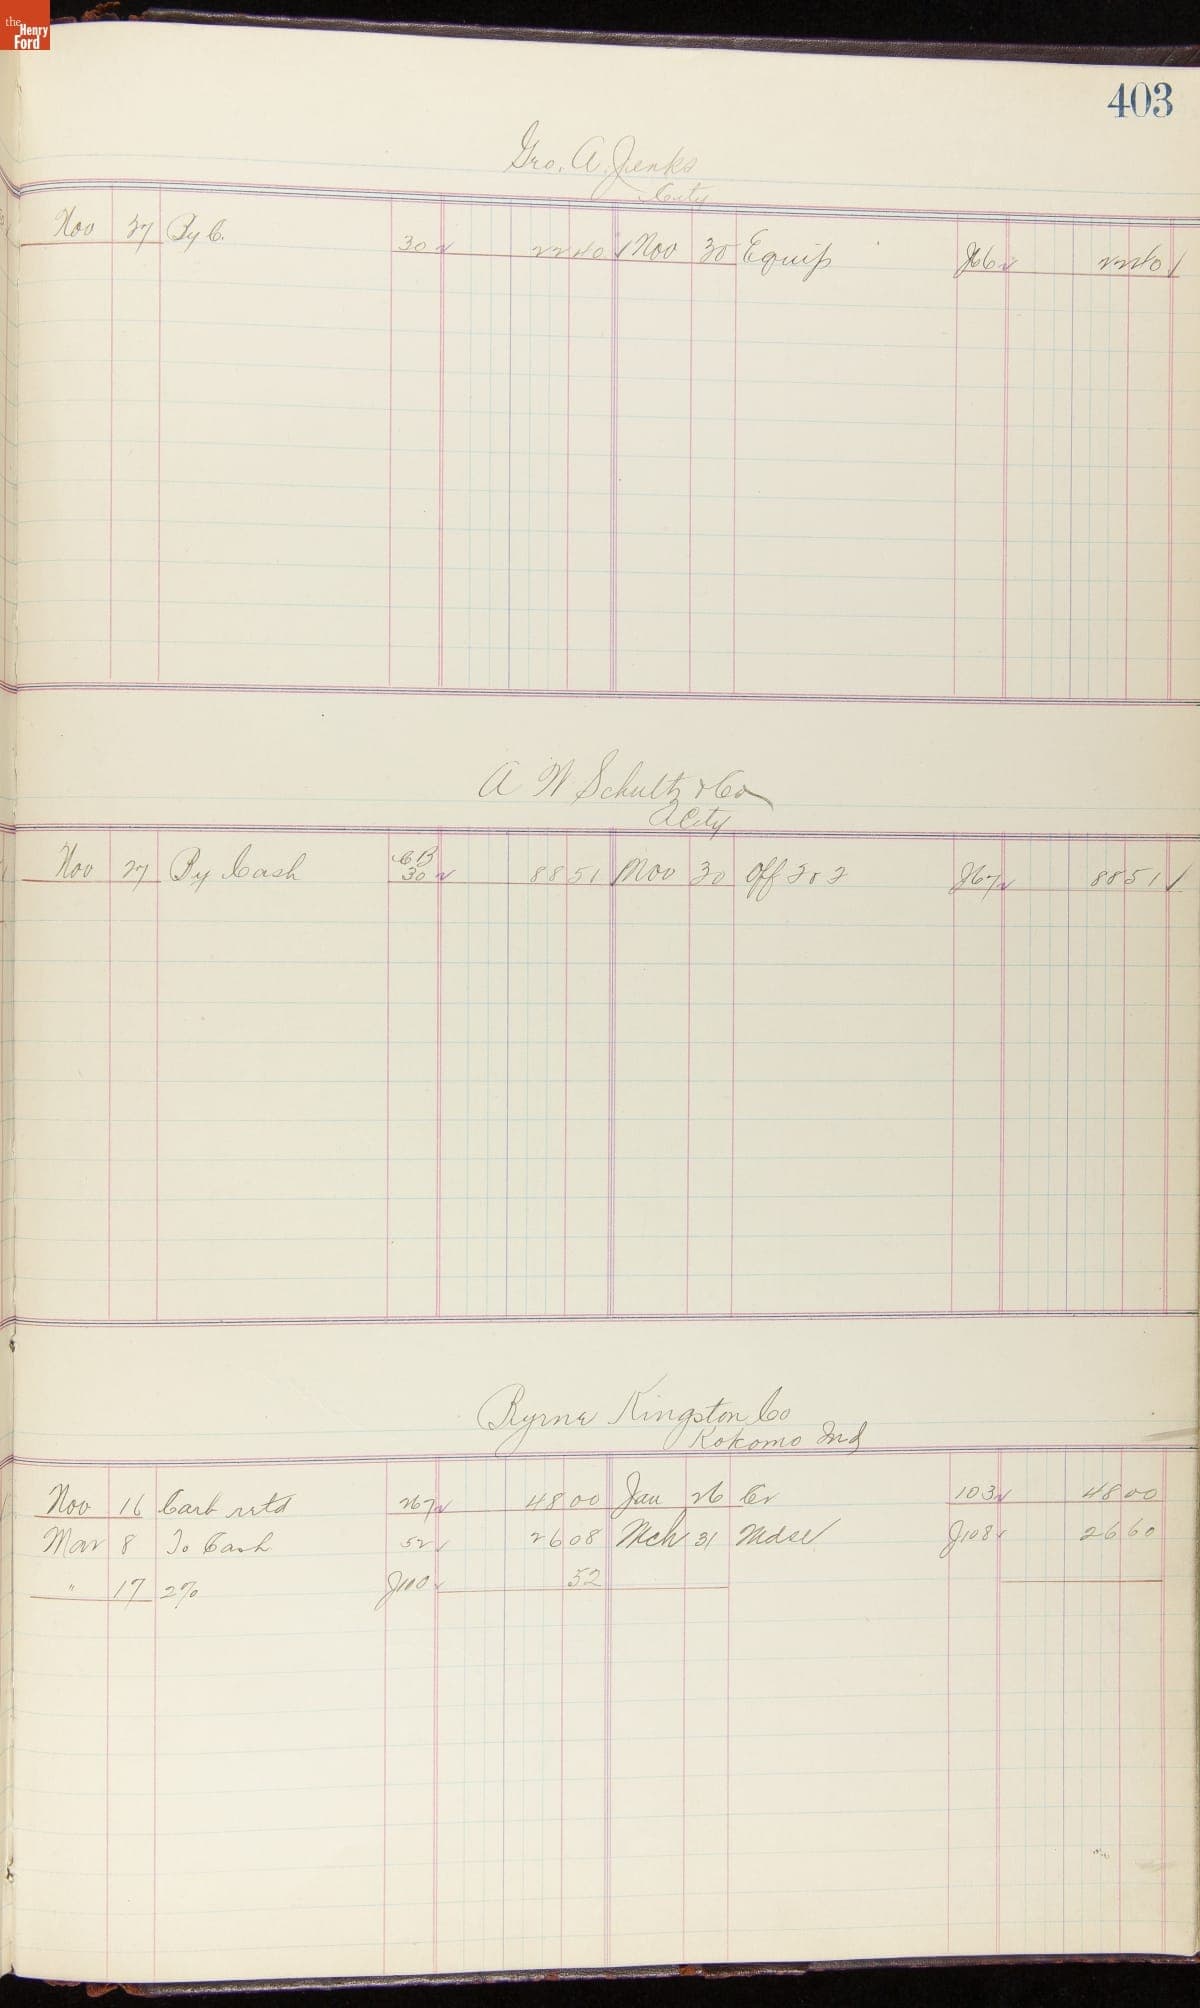 the Henry Ford
403
Geo. A. Jenks
City
Nov 27 By C. 30 22 40 Nov 30 Equip J66 22 40
A W Schultz & Co
City
CB
Nov 27 By Cash 30 88 51 Nov 30 Off J67 88 51
Byrne Kingston Co
Kokomo Ind
Nov 16 Carb retd 267 48 00 Jan 26 Cr 103 48 00
Mar 8 To Cash 52 26 08 Mch 31 Mdse J108 26 60
" 17 2% J100 52